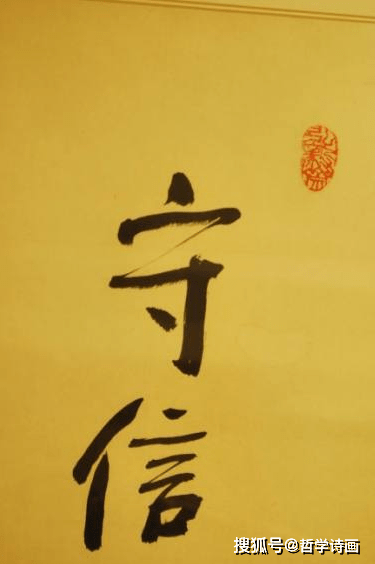 守信
搜狐号@哲学诗画